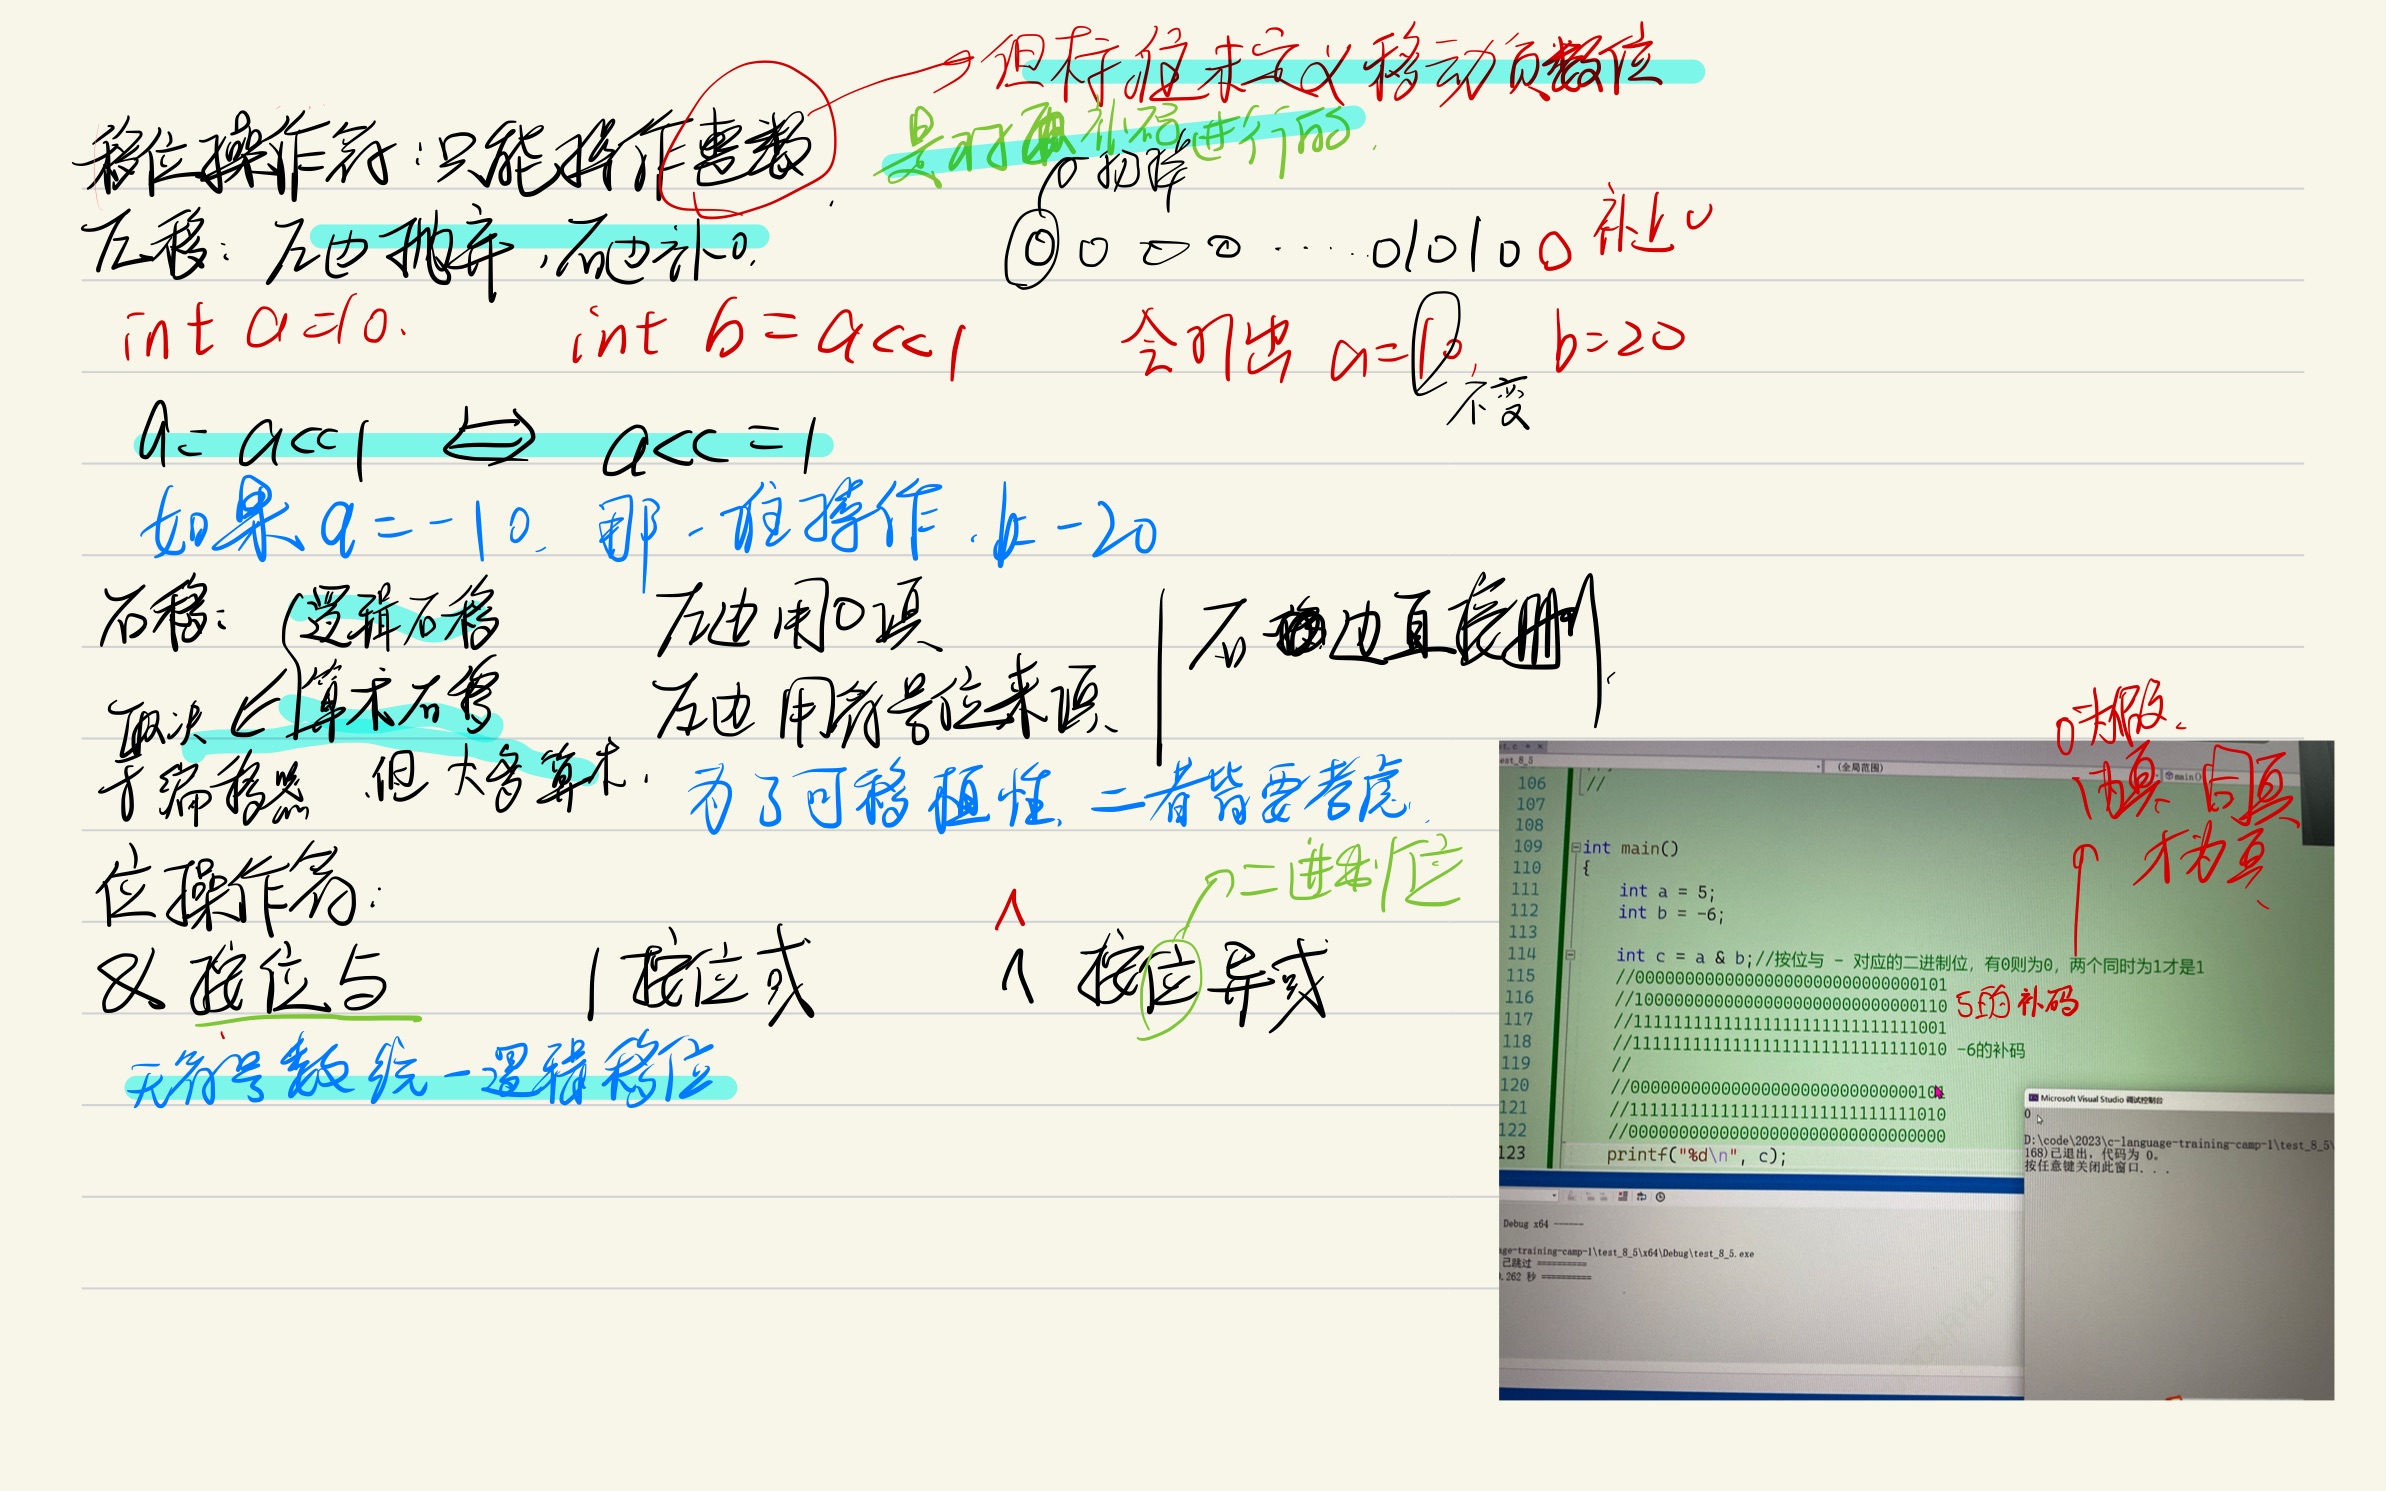 但标准未定义移动负数位
移位操作符：只能操作整数
是对补码进行的.
扔掉
左移：左边抛弃,右边补0.
0 0 0 0 ···· 010100 补上0
int a=10. int b=a<<1 会打出 a=10, b=20
不变
a=a<<1 ⇔ a<<=1
如果a=-10. 那一堆操作.b=-20
右移： 逻辑右移 左边用0填 右边直接删.
算术右移 左边用符号位来填、
取决
于编移器 但大多算术.
为了可移植性、二者皆要考虑.
位操作符：
二进制位
^
& 按位与 | 按位或 ^ 按位异或
无符号数统一逻辑移位
0为假、
1为真 同真
才为真、
est_8_5 (全局范围) main()
106 //
107
108
109 int main()
110 {
111 int a = 5;
112 int b = -6;
113
114 int c = a & b;//按位与 - 对应的二进制位，有0则为0，两个同时为1才是1
115 //00000000000000000000000000000101
116 //10000000000000000000000000000110 5的补码
117 //11111111111111111111111111111001
118 //11111111111111111111111111111010 -6的补码
119 //
120 //00000000000000000000000000000101
121 //11111111111111111111111111111010
122 //00000000000000000000000000000000
123 printf("%d\n", c);
Microsoft Visual Studio 调试控制台
0
D:\code\2023\c-language-training-camp-1\test_8_5\
168)已退出，代码为 0。
按任意键关闭此窗口. . .
Debug x64 ------
age-training-camp-1\test_8_5\x64\Debug\test_8_5.exe
已跳过 ==========
0.262 秒 ==========